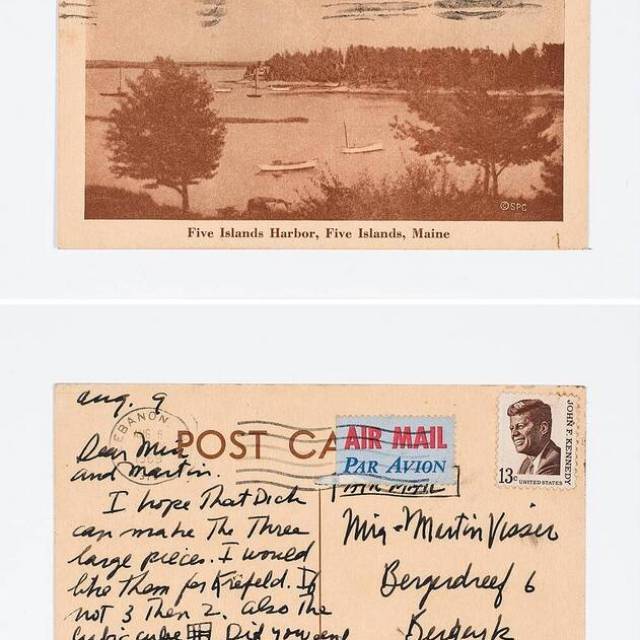 ©SPC
Five Islands Harbor, Five Islands, Maine
Aug. 9
EBANON
Dear Mia
and Martin.
I hope that Dick
can make the Three
large pieces. I would
like them for Krefeld. If
not 3 Then 2. Also the
cubic cube Did you and
POST CA
AIR MAIL
PAR AVION
AIR MAIL
JOHN F. KENNEDY
13c UNITED STATES
Mia + Martin Visser
Bergerdreef 6
Bergeyk